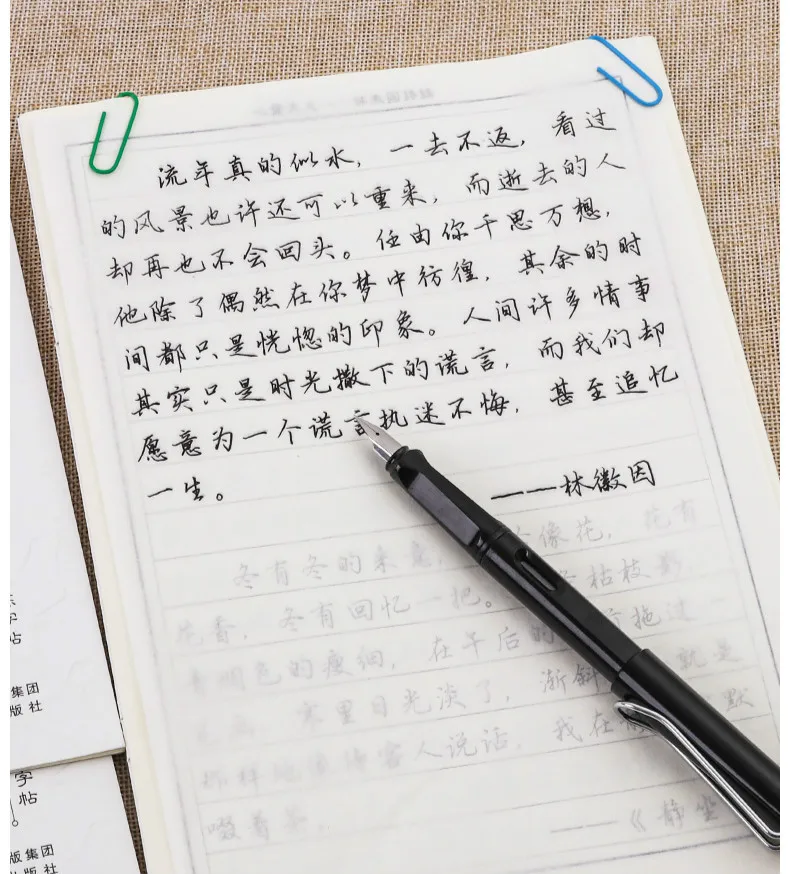 流年真的似水，一去不返，看过
的风景也许还可以重来，而逝去的人
却再也不会回头。任由你千思万想，
他除了偶然在你梦中彷徨，其余的时
间都只是恍惚的印象。人间许多情事
其实只是时光撒下的谎言，而我们却
愿意为一个谎言执迷不悔，甚至追忆
一生。
——林徽因
冬有冬的来意，像花，花有
花香，冬有回忆一把。枯枝影，
色的瘦细，在午后的拖过
寒里日光淡了，渐斜就是
客人说话，我在默
啜着茶。
——《静坐
字
帖
集团
版社
字
帖
版集团
版社